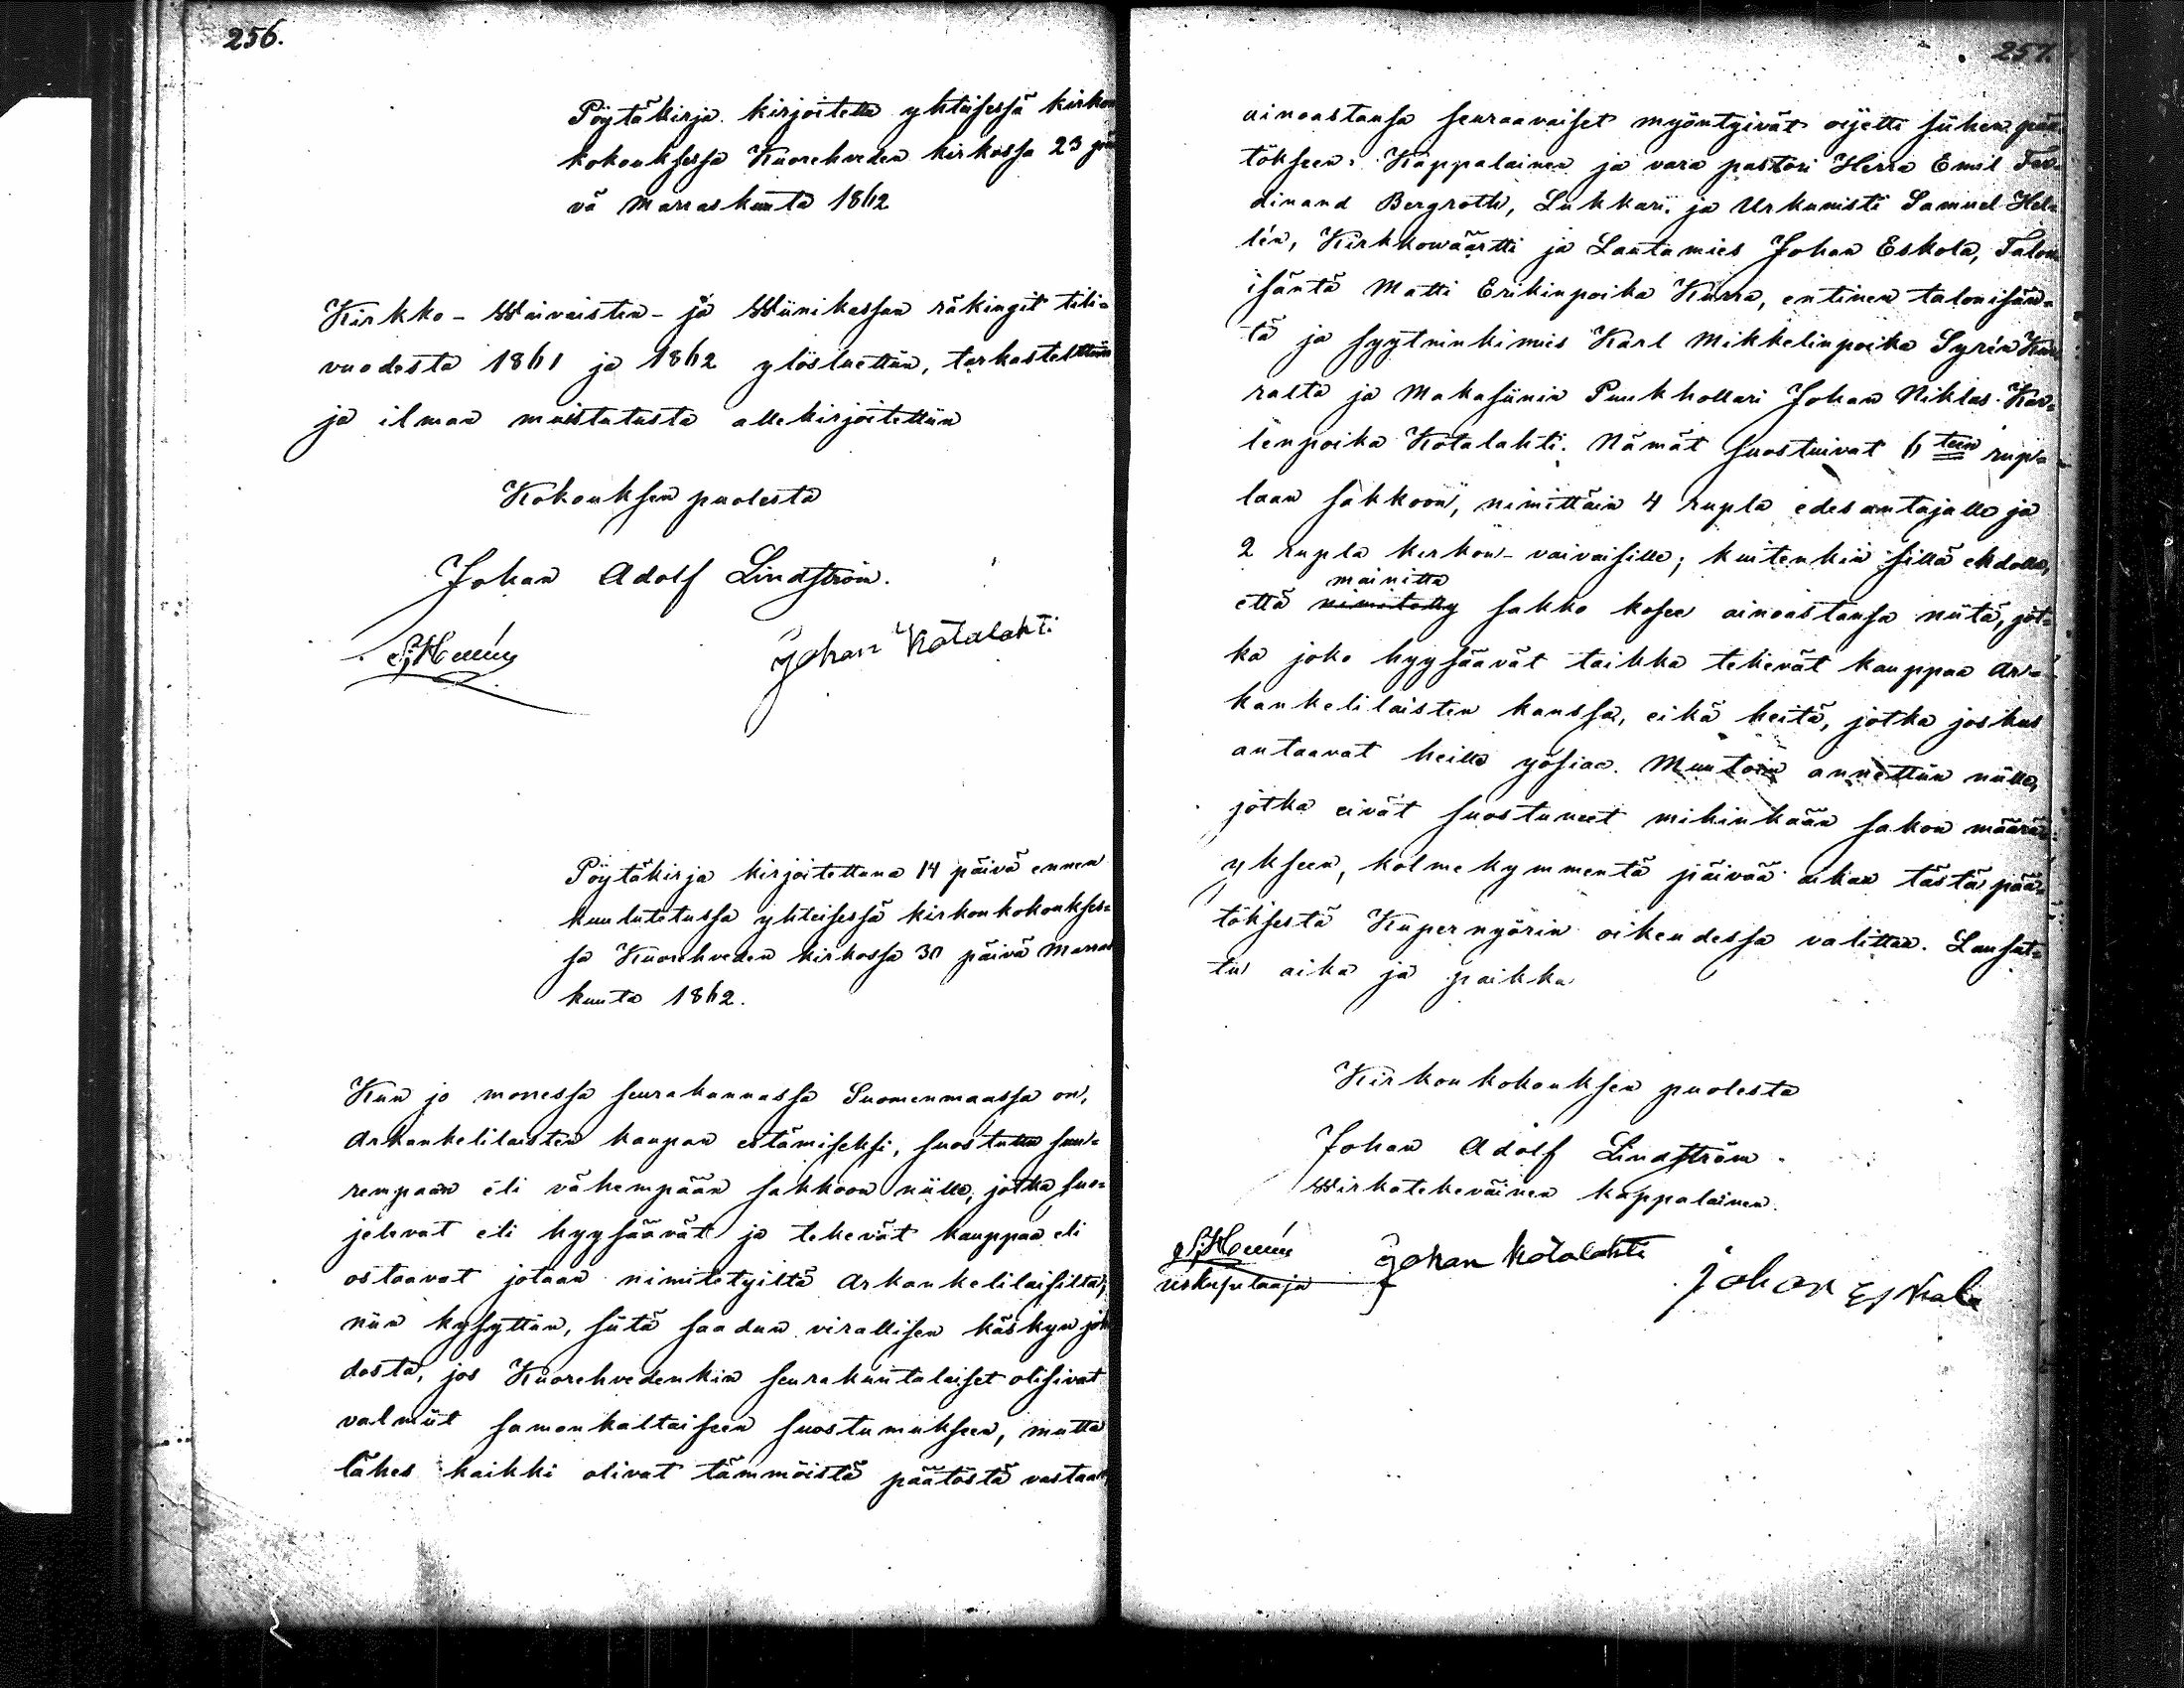 256.
Pöytäkirja kirjoitettu yhteisessä kirkon
kokouksessa Kuorehveden kirkossa 23 päi
vä Marraskuuta 1862
Kirkko- Waivaisten- ja Wiinikassan räkingit tili=
vuodesta 1861 ja 1862 ylösluettiin, tarkasteltiin
ja ilman muistutusta allekirjoitettiin
Kokouksen puolesta
Johan Adolf Lindström.
Johan Kotalahti
Pöytäkirja kirjoitettuna 14 päivä ennen
kuulutetussa yhteisessä kirkonkokoukses=
sa Kuorehveden kirkossa 30 päivä Marras
kuuta 1862.
Kun jo monessa seurakunnassa Suomenmaassa on,
Arkankelilaisten kaupan estämiseksi, suostuttu suu=
rempaan eli vähempään sakkoon niille, jotka suo=
jelevat eli hyysäävät ja tekevät kauppaa eli
ostaavat jotaan nimitetyiltä Arkankelilaisilta;
niin kysyttiin, siitä saadun virallisen käskyn joh
dosta, jos Kuorehvedenkin seurakuntalaiset olisivat
valmiit samankaltaiseen suostumukseen, mutta
lähes kaikki olivat tämmöistä päätöstä vastaan,
257.
ainoastansa seuraavaiset myöntyivät oijetti siihen pää
tökseen: Kappalainen ja vara pastori Herra Emil Fer=
dinand Bergroth, Lukkari ja Urkunisti Samuel Hel=
lén, Kirkkowäärtti ja Lautamies Johan Eskola, Talon
isäntä Matti Erikinpoika Kurra, entinen talonisän=
tä ja syytninkimies Karl Mikkelinpoika Syrén Kur
ralta ja Makasiinin Puukhollari Johan Niklas Kar=
lenpoika Kotalahti. Nämät suostuivat 6 teen rup=
laan sakkoon, nimittäin 4 rupla edesantajalle ja
2 rupla kirkon-vaivaisille; kuitenkin sillä ehdolla,
mainittu
että nimitetty sakko kosee ainoastansa niitä, jot=
ka joko hyysäävät taikka tekevät kauppaa Ar=
kankelilaisten kanssa, eikä heitä, jotka joskus
antaavat heille yösiaa. Muutoin annettiin niille,
jotka eivät suostuneet mihinkään sakon määrä=
ykseen, kolmekymmentä päivää aikaa tästä pää=
töksestä Kupernyörin oikeudessa valittaa. Lausut=
tu aika ja paikka
Kirkonkokouksen puolesta
Johan Adolf Lindström.
Wirkatekeväinen kappalainen.
Johan Kotalahti
Johan Eskola